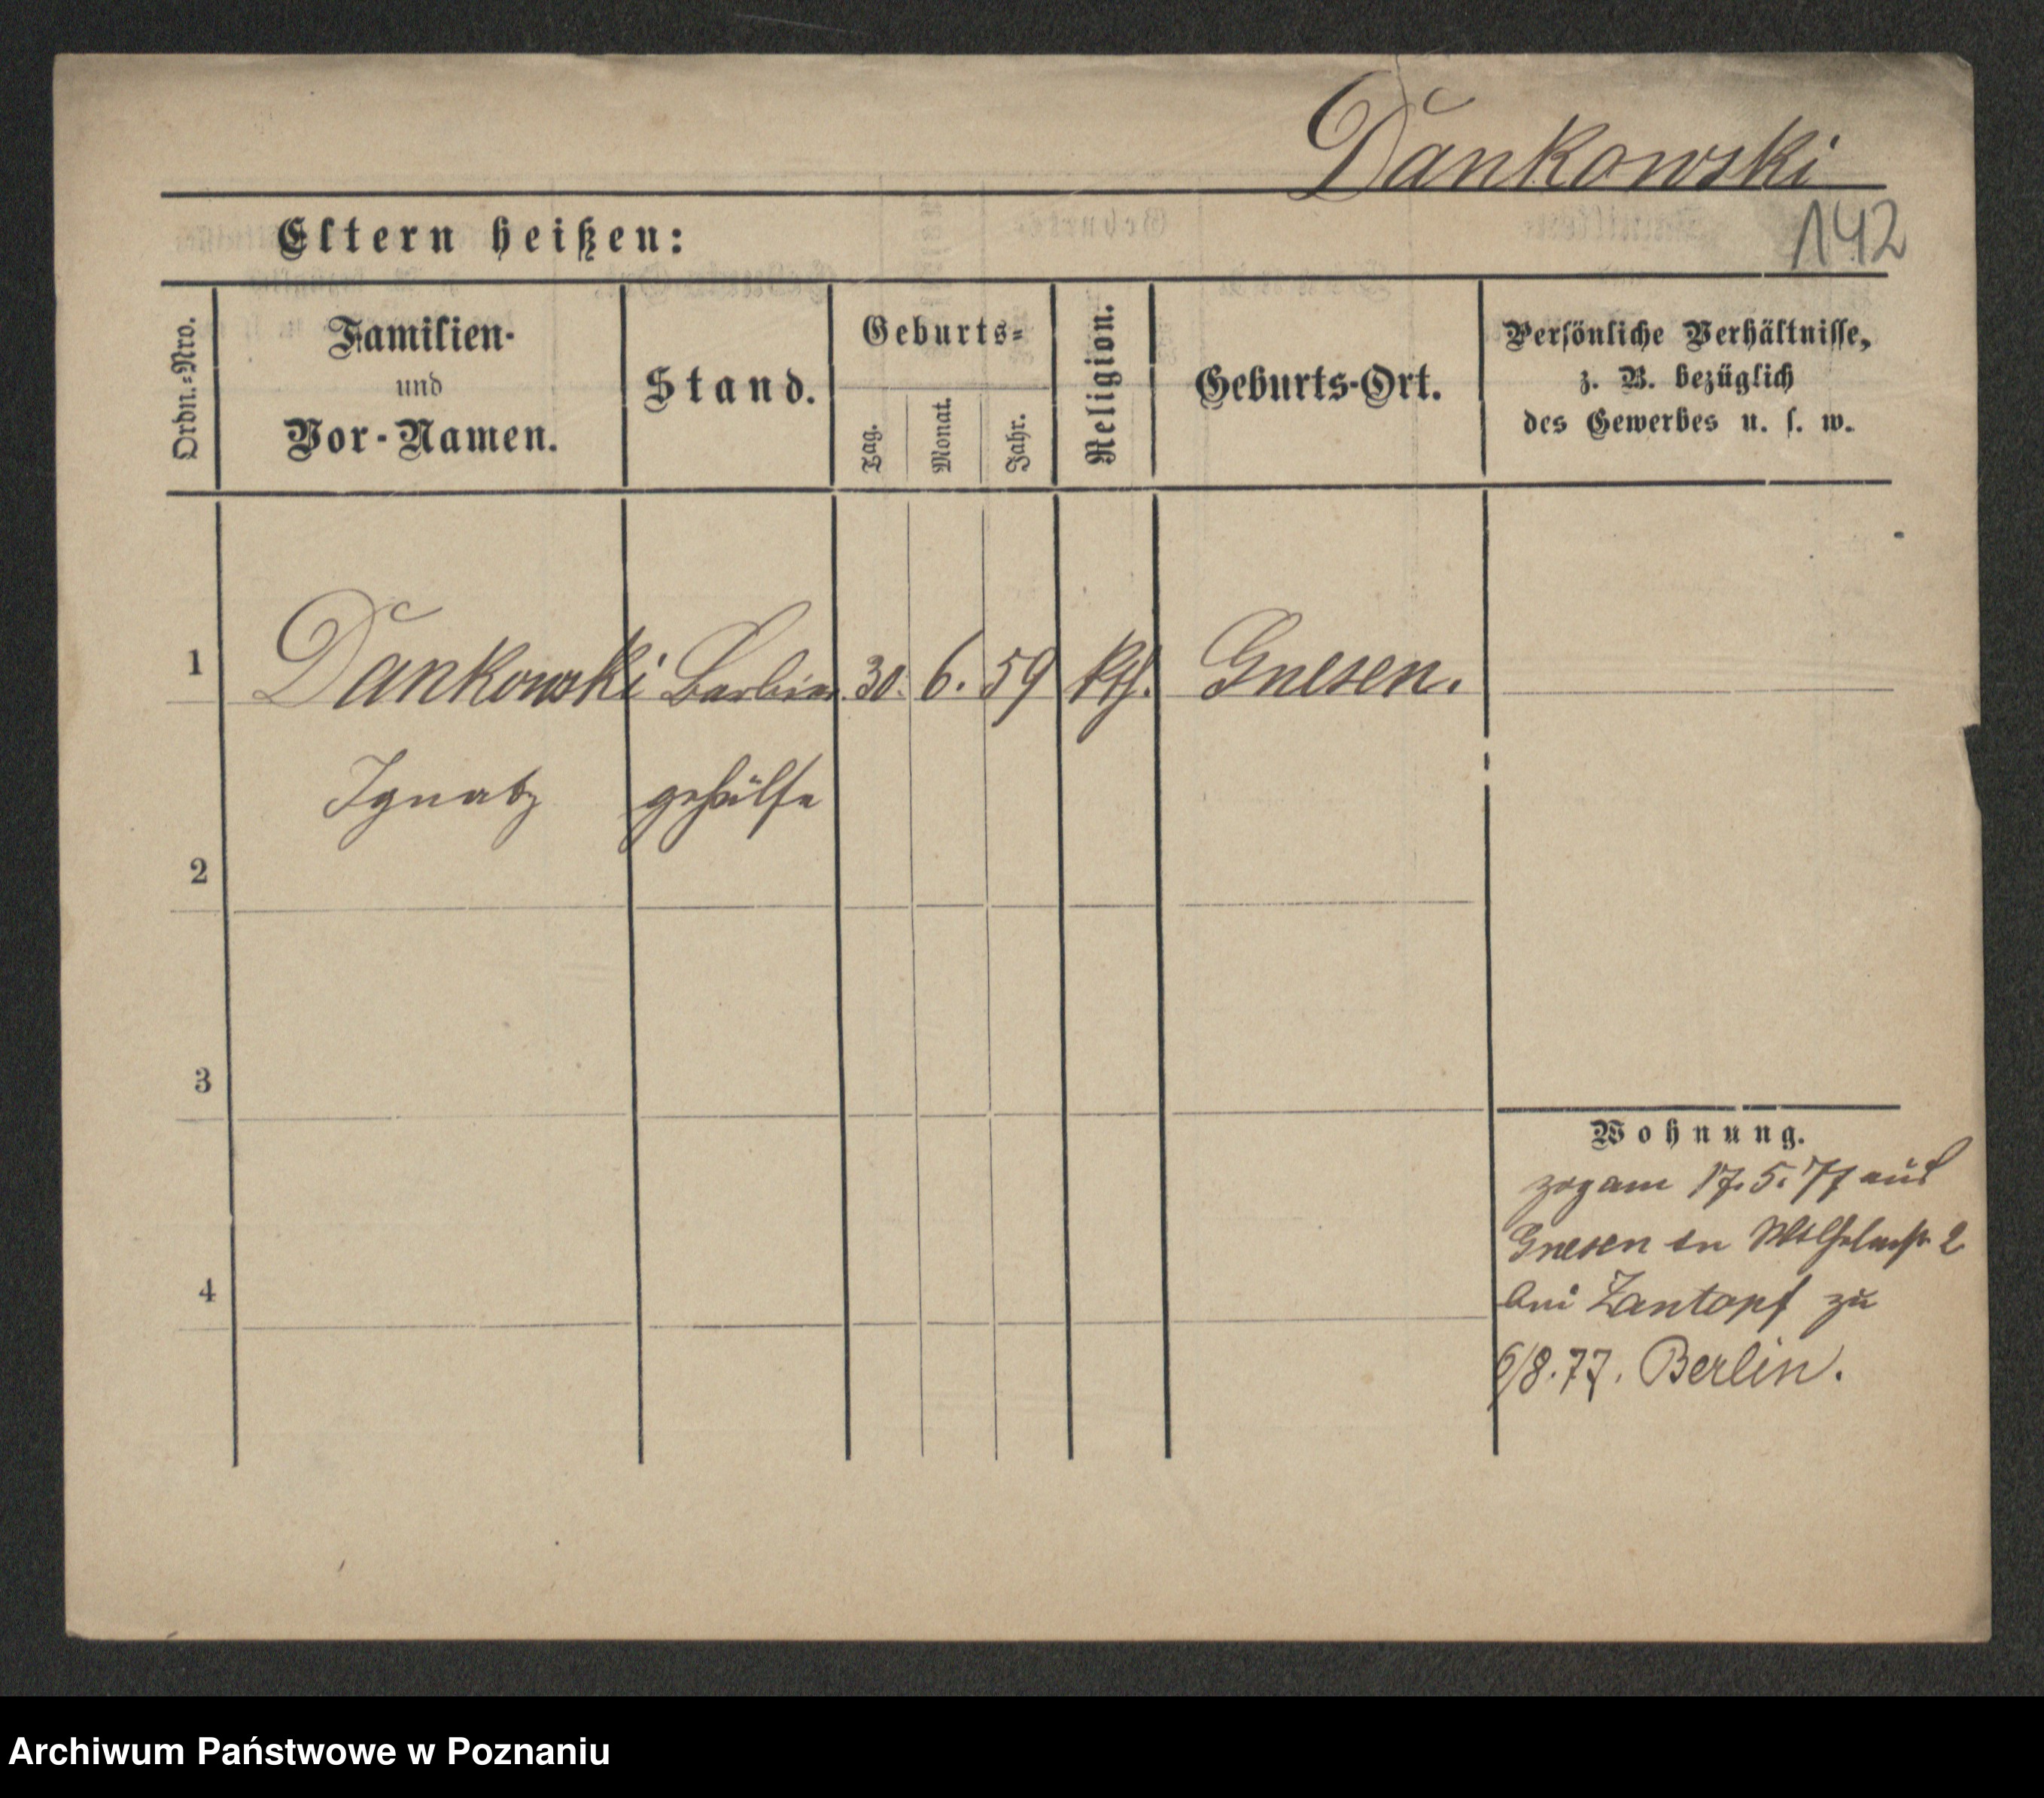 Dankowski
142
Eltern heißen:
Ordn.=Nro.
Familien-
und
Vor-Namen.
Stand.
Geburts=
Tag.
Monat.
Jahr.
Religion.
Geburts-Ort.
Persönliche Verhältnisse,
z. B. bezüglich
des Gewerbes u. s. w.
1
Dankowski Barbier 30. 6. 59 kth. Gnesen.
Ignatz gehülfe
2
3
4
Wohnung.
zog am 17.5.77 aus
Gnesen in Wilhelmstr. 2
bei Zantopf zu
6/8.77. Berlin.
Archiwum Państwowe w Poznaniu